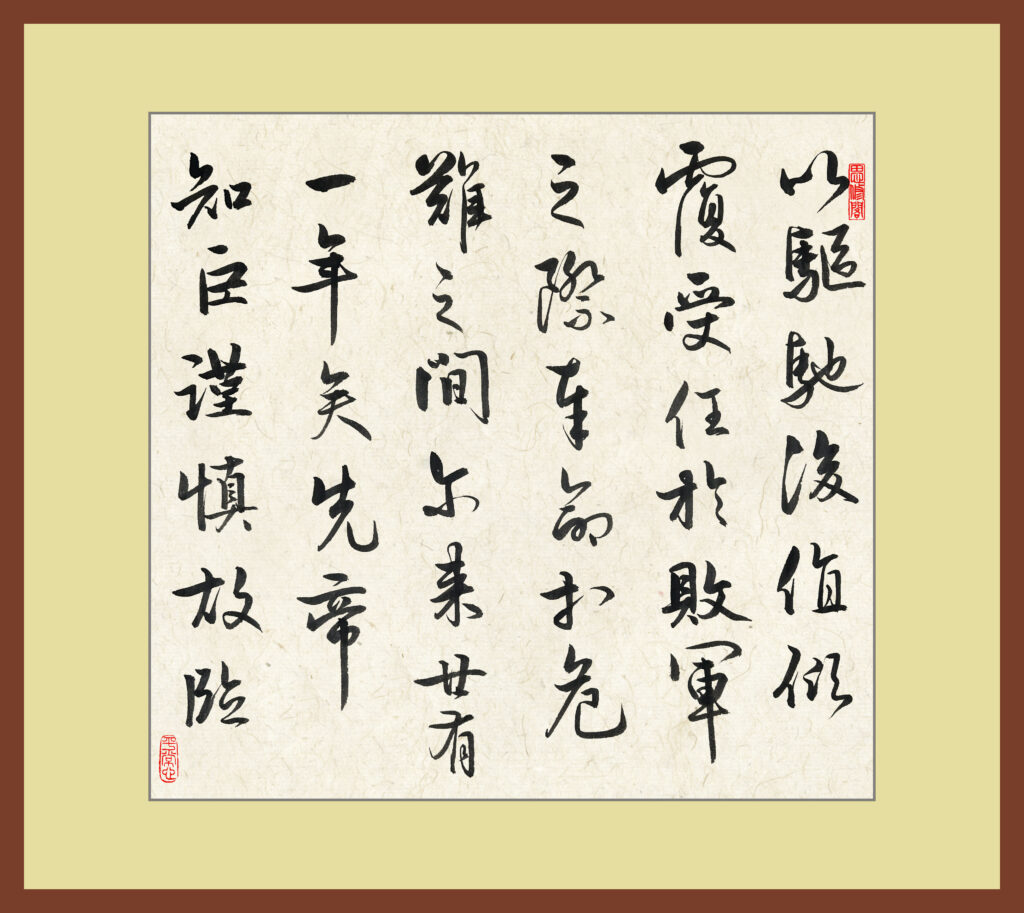 思修閣
以驅馳後值傾
覆受任於敗軍
之際奉命於危
難之間尔来廿有
一年矣先帝
知臣謹慎故臨
平常心